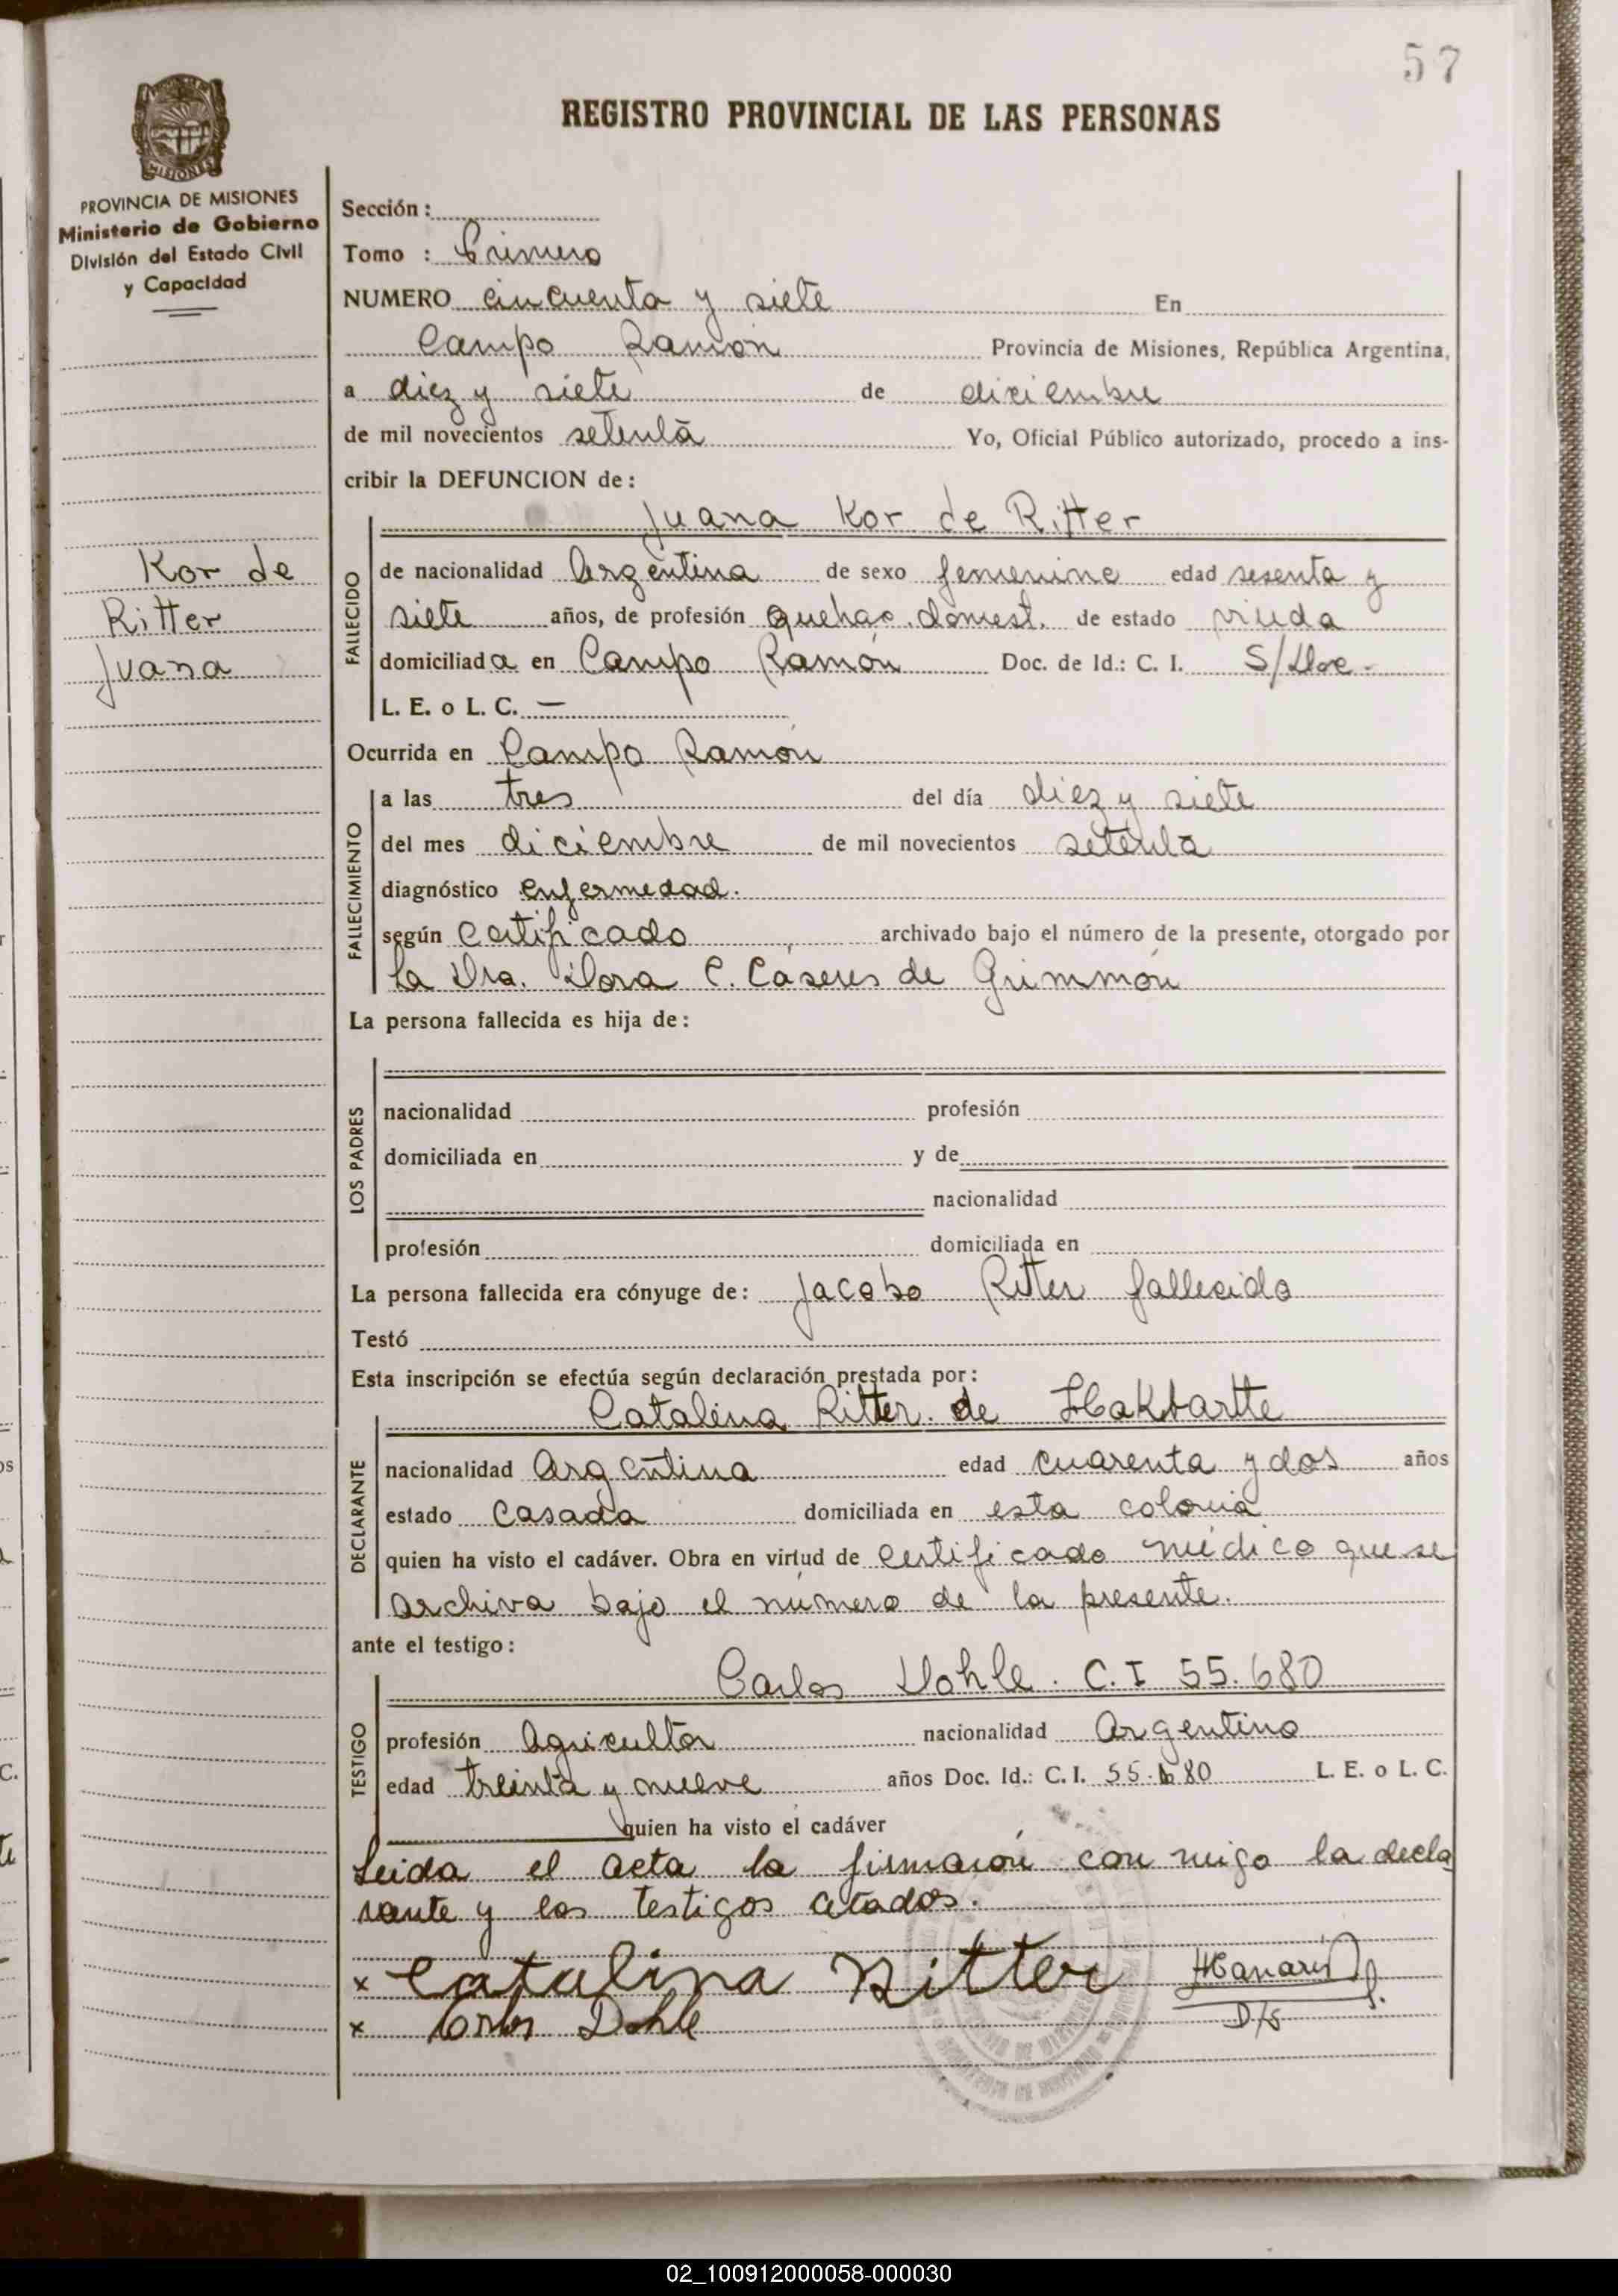 57
REGISTRO PROVINCIAL DE LAS PERSONAS
MISIONES
PROVINCIA DE MISIONES
Ministerio de Gobierno
División del Estado Civil
y Capacidad
Kor de
Ritter
Juana
Sección:
Tomo : Primero
NUMERO cincuenta y siete En
Campo Ramón Provincia de Misiones, República Argentina,
a diez y siete de diciembre
de mil novecientos setenta Yo, Oficial Público autorizado, procedo a ins-
cribir la DEFUNCION de:
FALLECIDO
Juana Kor de Ritter
de nacionalidad Argentina de sexo femenino edad sesenta y
siete años, de profesión Quehac. domest. de estado viuda
domiciliada en Campo Ramón Doc. de Id.: C. I. S/Doc.-
L. E. o L. C. —
Ocurrida en Campo Ramón
FALLECIMIENTO
a las tres del día diez y siete
del mes diciembre de mil novecientos setenta
diagnóstico enfermedad.
según certificado archivado bajo el número de la presente, otorgado por
la Dra. Dora C. Cáseres de Grimmón
La persona fallecida es hija de:
LOS PADRES
nacionalidad profesión
domiciliada en y de
nacionalidad
profesión domiciliada en
La persona fallecida era cónyuge de: Jacobo Ritter fallecido
Testó
Esta inscripción se efectúa según declaración prestada por:
DECLARANTE
Catalina Ritter de Hakbartte
nacionalidad Argentina edad cuarenta y dos años
estado Casada domiciliada en esta colonia
quien ha visto el cadáver. Obra en virtud de certificado médico que se
archiva bajo el número de la presente.
ante el testigo:
TESTIGO
Carlos Dohle. C.I 55.680
profesión Agricultor nacionalidad Argentino
edad treinta y nueve años Doc. Id.: C. I. 55.680 L. E. o L. C.
quien ha visto el cadáver
Leida el acta la firmaron con migo la decla
rante y los testigos citados.
x Catalina Ritter
x Carlos Dohle
02_100912000058-000030